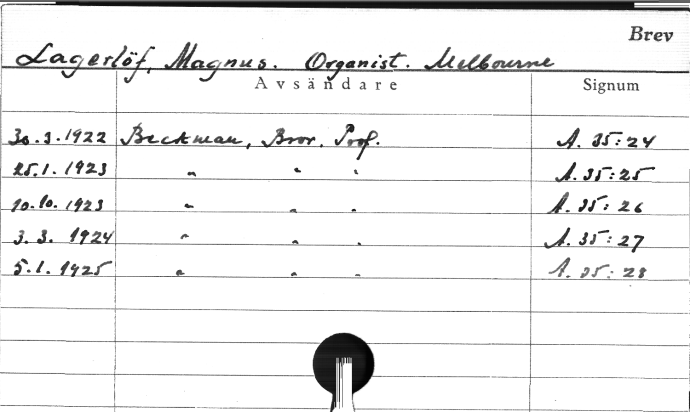 Brev
Lagerlöf, Magnus. Organist. Melbourne
Avsändare Signum
30.3.1922 Beckman, Bror, Prof. A. 35:24
25.1.1923 " " " A. 35:25
10.10.1923 " " " A. 35:26
3.3.1924 " " " A. 35:27
5.1.1925 " " " A. 35:28